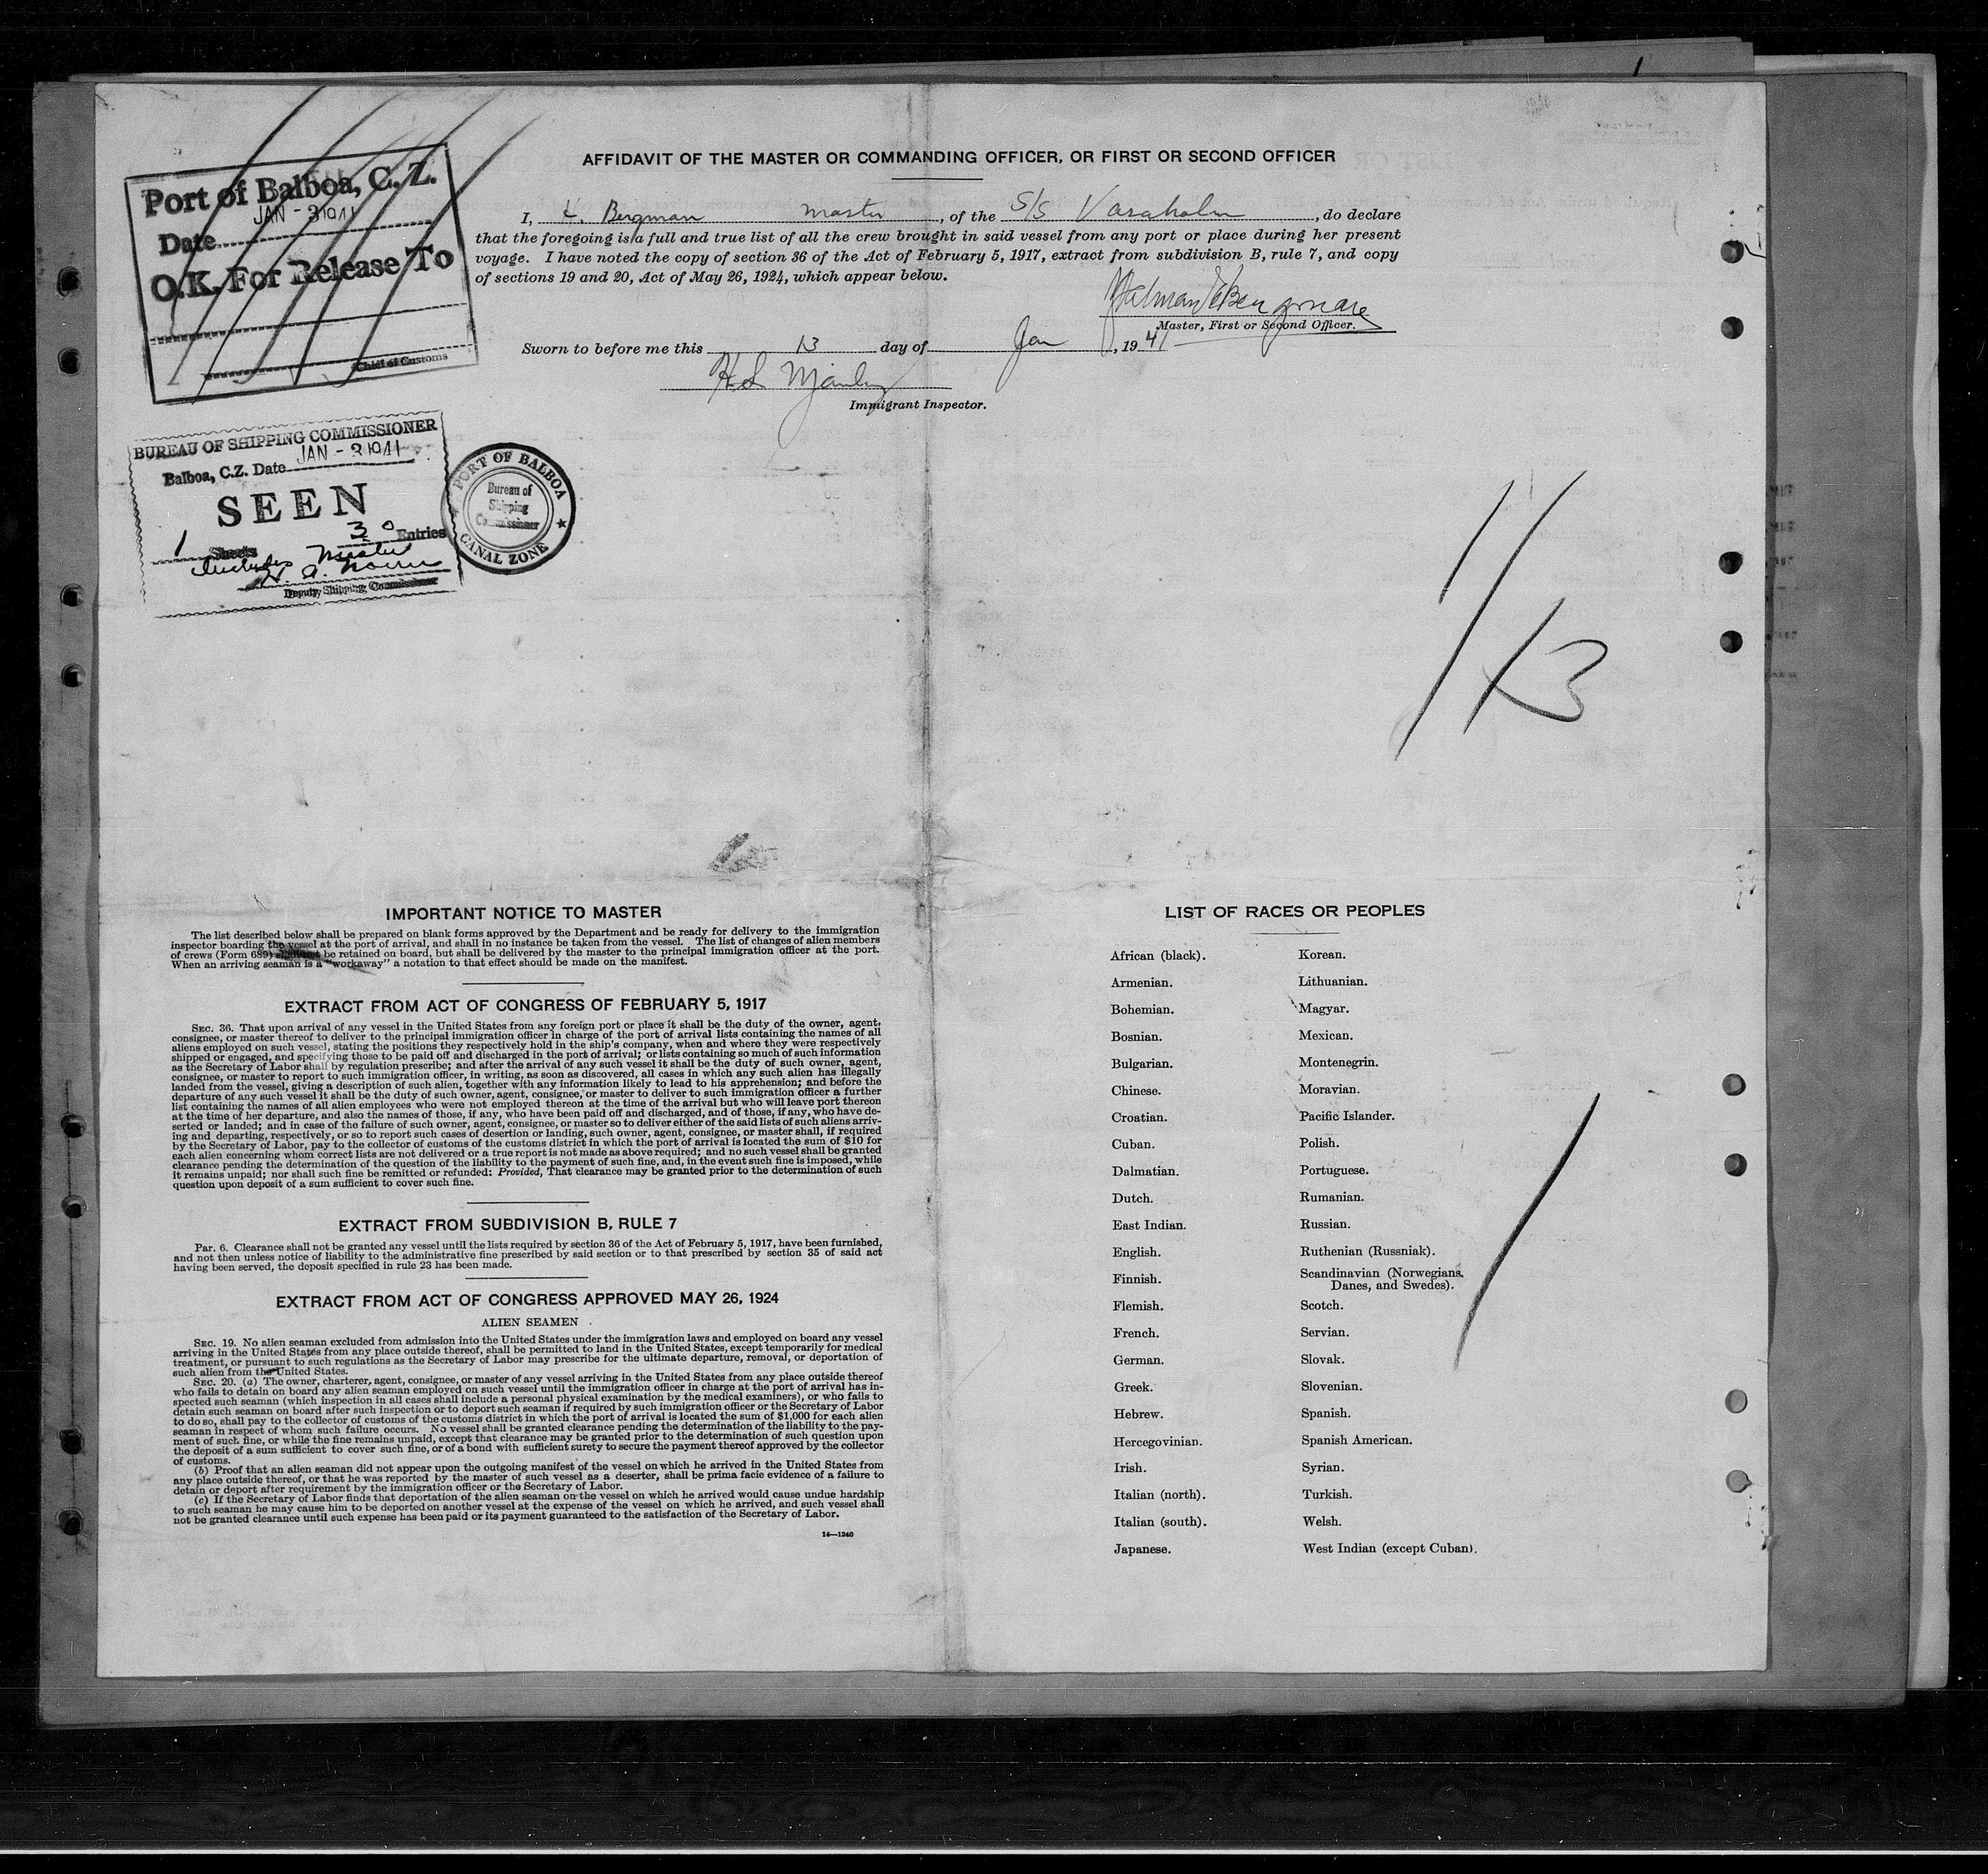 AFFIDAVIT OF THE MASTER OR COMMANDING OFFICER, OR FIRST OR SECOND OFFICER
Port of Balboa, C. Z.
JAN - 3 1941
Date
O.K. For Release To
Chief of Customs
I, Bergman master, of the S/S Vasaholm, do declare
that the foregoing is a full and true list of all the crew brought in said vessel from any port or place during her present
voyage. I have noted the copy of section 36 of the Act of February 5, 1917, extract from subdivision B, rule 7, and copy
of sections 19 and 20, Act of May 26, 1924, which appear below.
Master, First or Second Officer.
Sworn to before me this 13 day of Jan, 1941
Immigrant Inspector.
BUREAU OF SHIPPING COMMISSIONER
Balboa, C.Z. Date JAN - 3 1941
SEEN
1 Sheets 30 Entries
includes Master
Deputy Shipping Commissioner
PORT OF BALBOA
Bureau of
Shipping
Commissioner
CANAL ZONE
1/13
IMPORTANT NOTICE TO MASTER
The list described below shall be prepared on blank forms approved by the Department and be ready for delivery to the immigration
inspector boarding the vessel at the port of arrival, and shall in no instance be taken from the vessel. The list of changes of alien members
of crews (Form 689) be retained on board, but shall be delivered by the master to the principal immigration officer at the port.
When an arriving seaman is a "workaway" a notation to that effect should be made on the manifest.
EXTRACT FROM ACT OF CONGRESS OF FEBRUARY 5, 1917
SEC. 36. That upon arrival of any vessel in the United States from any foreign port or place it shall be the duty of the owner, agent,
consignee, or master thereof to deliver to the principal immigration officer in charge of the port of arrival lists containing the names of all
aliens employed on such vessel, stating the positions they respectively hold in the ship's company, when and where they were respectively
shipped or engaged, and specifying those to be paid off and discharged in the port of arrival; or lists containing so much of such information
as the Secretary of Labor shall by regulation prescribe; and after the arrival of any such vessel it shall be the duty of such owner, agent,
consignee, or master to report to such immigration officer, in writing, as soon as discovered, all cases in which any such alien has illegally
landed from the vessel, giving a description of such alien, together with any information likely to lead to his apprehension; and before the
departure of any such vessel it shall be the duty of such owner, agent, consignee, or master to deliver to such immigration officer a further
list containing the names of all alien employees who were not employed thereon at the time of the arrival but who will leave port thereon
at the time of her departure, and also the names of those, if any, who have been paid off and discharged, and of those, if any, who have de-
serted or landed; and in case of the failure of such owner, agent, consignee, or master so to deliver either of the said lists of such aliens arriv-
ing and departing, respectively, or so to report such cases of desertion or landing, such owner, agent, consignee, or master shall, if required
by the Secretary of Labor, pay to the collector of customs of the customs district in which the port of arrival is located the sum of $10 for
each alien concerning whom correct lists are not delivered or a true report is not made as above required; and no such vessel shall be granted
clearance pending the determination of the question of the liability to the payment of such fine, and, in the event such fine is imposed, while
it remains unpaid; nor shall such fine be remitted or refunded: Provided, That clearance may be granted prior to the determination of such
question upon deposit of a sum sufficient to cover such fine.
EXTRACT FROM SUBDIVISION B, RULE 7
Par. 6. Clearance shall not be granted any vessel until the lists required by section 36 of the Act of February 5, 1917, have been furnished,
and not then unless notice of liability to the administrative fine prescribed by said section or to that prescribed by section 35 of said act
having been served, the deposit specified in rule 23 has been made.
EXTRACT FROM ACT OF CONGRESS APPROVED MAY 26, 1924
ALIEN SEAMEN
SEC. 19. No alien seaman excluded from admission into the United States under the immigration laws and employed on board any vessel
arriving in the United States from any place outside thereof, shall be permitted to land in the United States, except temporarily for medical
treatment, or pursuant to such regulations as the Secretary of Labor may prescribe for the ultimate departure, removal, or deportation of
such alien from the United States.
SEC. 20. (a) The owner, charterer, agent, consignee, or master of any vessel arriving in the United States from any place outside thereof
who fails to detain on board any alien seaman employed on such vessel until the immigration officer in charge at the port of arrival has in-
spected such seaman (which inspection in all cases shall include a personal physical examination by the medical examiners), or who fails to
detain such seaman on board after such inspection or to deport such seaman if required by such immigration officer or the Secretary of Labor
to do so, shall pay to the collector of customs of the customs district in which the port of arrival is located the sum of $1,000 for each alien
seaman in respect of whom such failure occurs. No vessel shall be granted clearance pending the determination of the liability to the pay-
ment of such fine, or while the fine remains unpaid, except that clearance may be granted prior to the determination of such question upon
the deposit of a sum sufficient to cover such fine, or of a bond with sufficient surety to secure the payment thereof approved by the collector
of customs.
(b) Proof that an alien seaman did not appear upon the outgoing manifest of the vessel on which he arrived in the United States from
any place outside thereof, or that he was reported by the master of such vessel as a deserter, shall be prima facie evidence of a failure to
detain or deport after requirement by the immigration officer or the Secretary of Labor.
(c) If the Secretary of Labor finds that deportation of the alien seaman on the vessel on which he arrived would cause undue hardship
to such seaman he may cause him to be deported on another vessel at the expense of the vessel on which he arrived, and such vessel shall
not be granted clearance until such expense has been paid or its payment guaranteed to the satisfaction of the Secretary of Labor.
14—1240
LIST OF RACES OR PEOPLES
African (black).
Armenian.
Bohemian.
Bosnian.
Bulgarian.
Chinese.
Croatian.
Cuban.
Dalmatian.
Dutch.
East Indian.
English.
Finnish.
Flemish.
French.
German.
Greek.
Hebrew.
Hercegovinian.
Irish.
Italian (north).
Italian (south).
Japanese.
Korean.
Lithuanian.
Magyar.
Mexican.
Montenegrin.
Moravian.
Pacific Islander.
Polish.
Portuguese.
Rumanian.
Russian.
Ruthenian (Russniak).
Scandinavian (Norwegians,
Danes, and Swedes).
Scotch.
Servian.
Slovak.
Slovenian.
Spanish.
Spanish American.
Syrian.
Turkish.
Welsh.
West Indian (except Cuban).